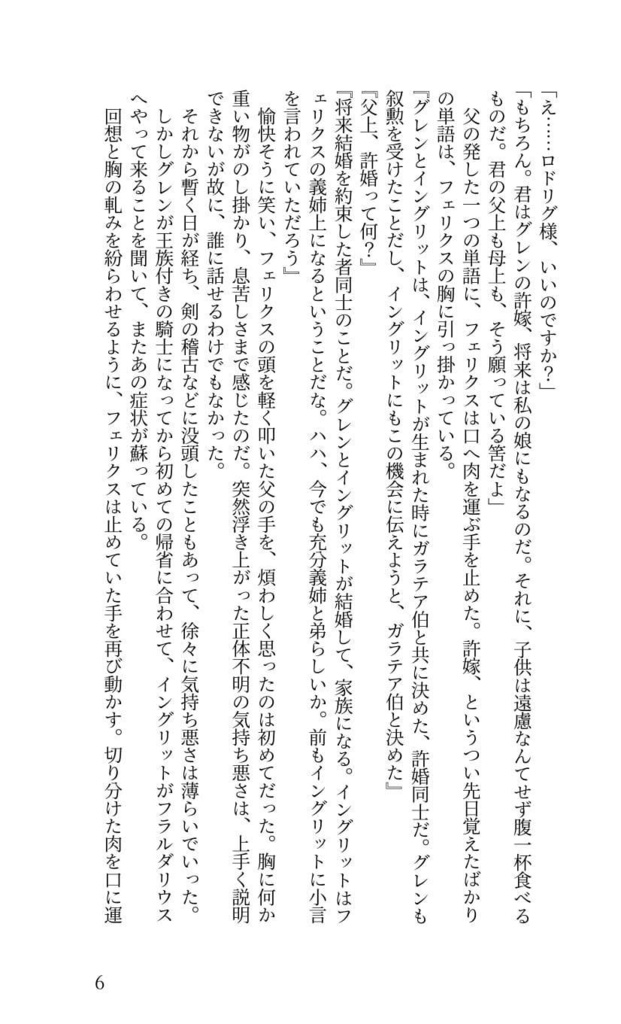 「え……ロドリグ様、いいのですか？」
「もちろん。君はグレンの許嫁、将来は私の娘にもなるのだ。それに、子供は遠慮なんてせず腹一杯食べる
ものだ。君の父上も母上も、そう願っている筈だよ」
父の発した一つの単語に、フェリクスは口へ肉を運ぶ手を止めた。許嫁、というつい先日覚えたばかり
の単語は、フェリクスの胸に引っ掛かっている。
『グレンとイングリットは、イングリットが生まれた時にガラテア伯と共に決めた、許婚同士だ。グレンも
叙勲を受けたことだし、イングリットにもこの機会に伝えようと、ガラテア伯と決めた』
『父上、許婚って何？』
『将来結婚を約束した者同士のことだ。グレンとイングリットが結婚して、家族になる。イングリットはフ
ェリクスの義姉上になるということだな。ハハ、今でも充分義姉と弟らしいか。前もイングリットに小言
を言われていただろう』
愉快そうに笑い、フェリクスの頭を軽く叩いた父の手を、煩わしく思ったのは初めてだった。胸に何か
重い物がのし掛かり、息苦しさまで感じたのだ。突然浮き上がった正体不明の気持ち悪さは、上手く説明
できないが故に、誰に話せるわけでもなかった。
それから暫く日が経ち、剣の稽古などに没頭したこともあって、徐々に気持ち悪さは薄らいでいった。
しかしグレンが王族付きの騎士になってから初めての帰省に合わせて、イングリットがフラルダリウス
へやって来ることを聞いて、またあの症状が蘇っている。
回想と胸の軋みを紛らわせるように、フェリクスは止めていた手を再び動かす。切り分けた肉を口に運
6